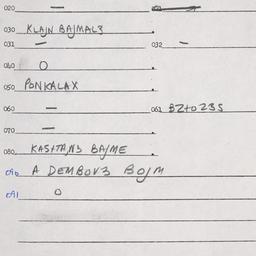 020 —
030 KLAJN BAJMALZ
031 — 032 —
040 O
050 PONKALAX
060 — 061 BZ+023S
070 —
080 KASHTAJNS BAJME
090 A DEMBOVZ BOJM
091 O